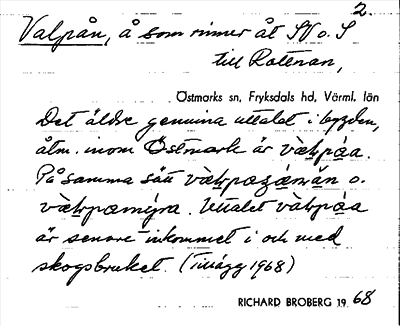 2.
Valpån, å som rinner åt SV o. S
till Rotenan,
Östmarks sn, Fryksdals hd, Värml. län
Det äldre genuina uttalet i bygden,
åtm. inom Östmark är
På samma sätt o.
Uttalet
är senare inkommet i och med
skogsbruket. (Tillägg 1968)
RICHARD BROBERG 19 68